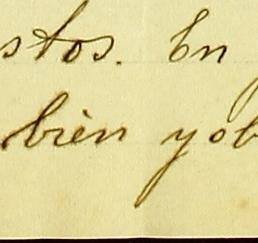 stos. En
bièn yob